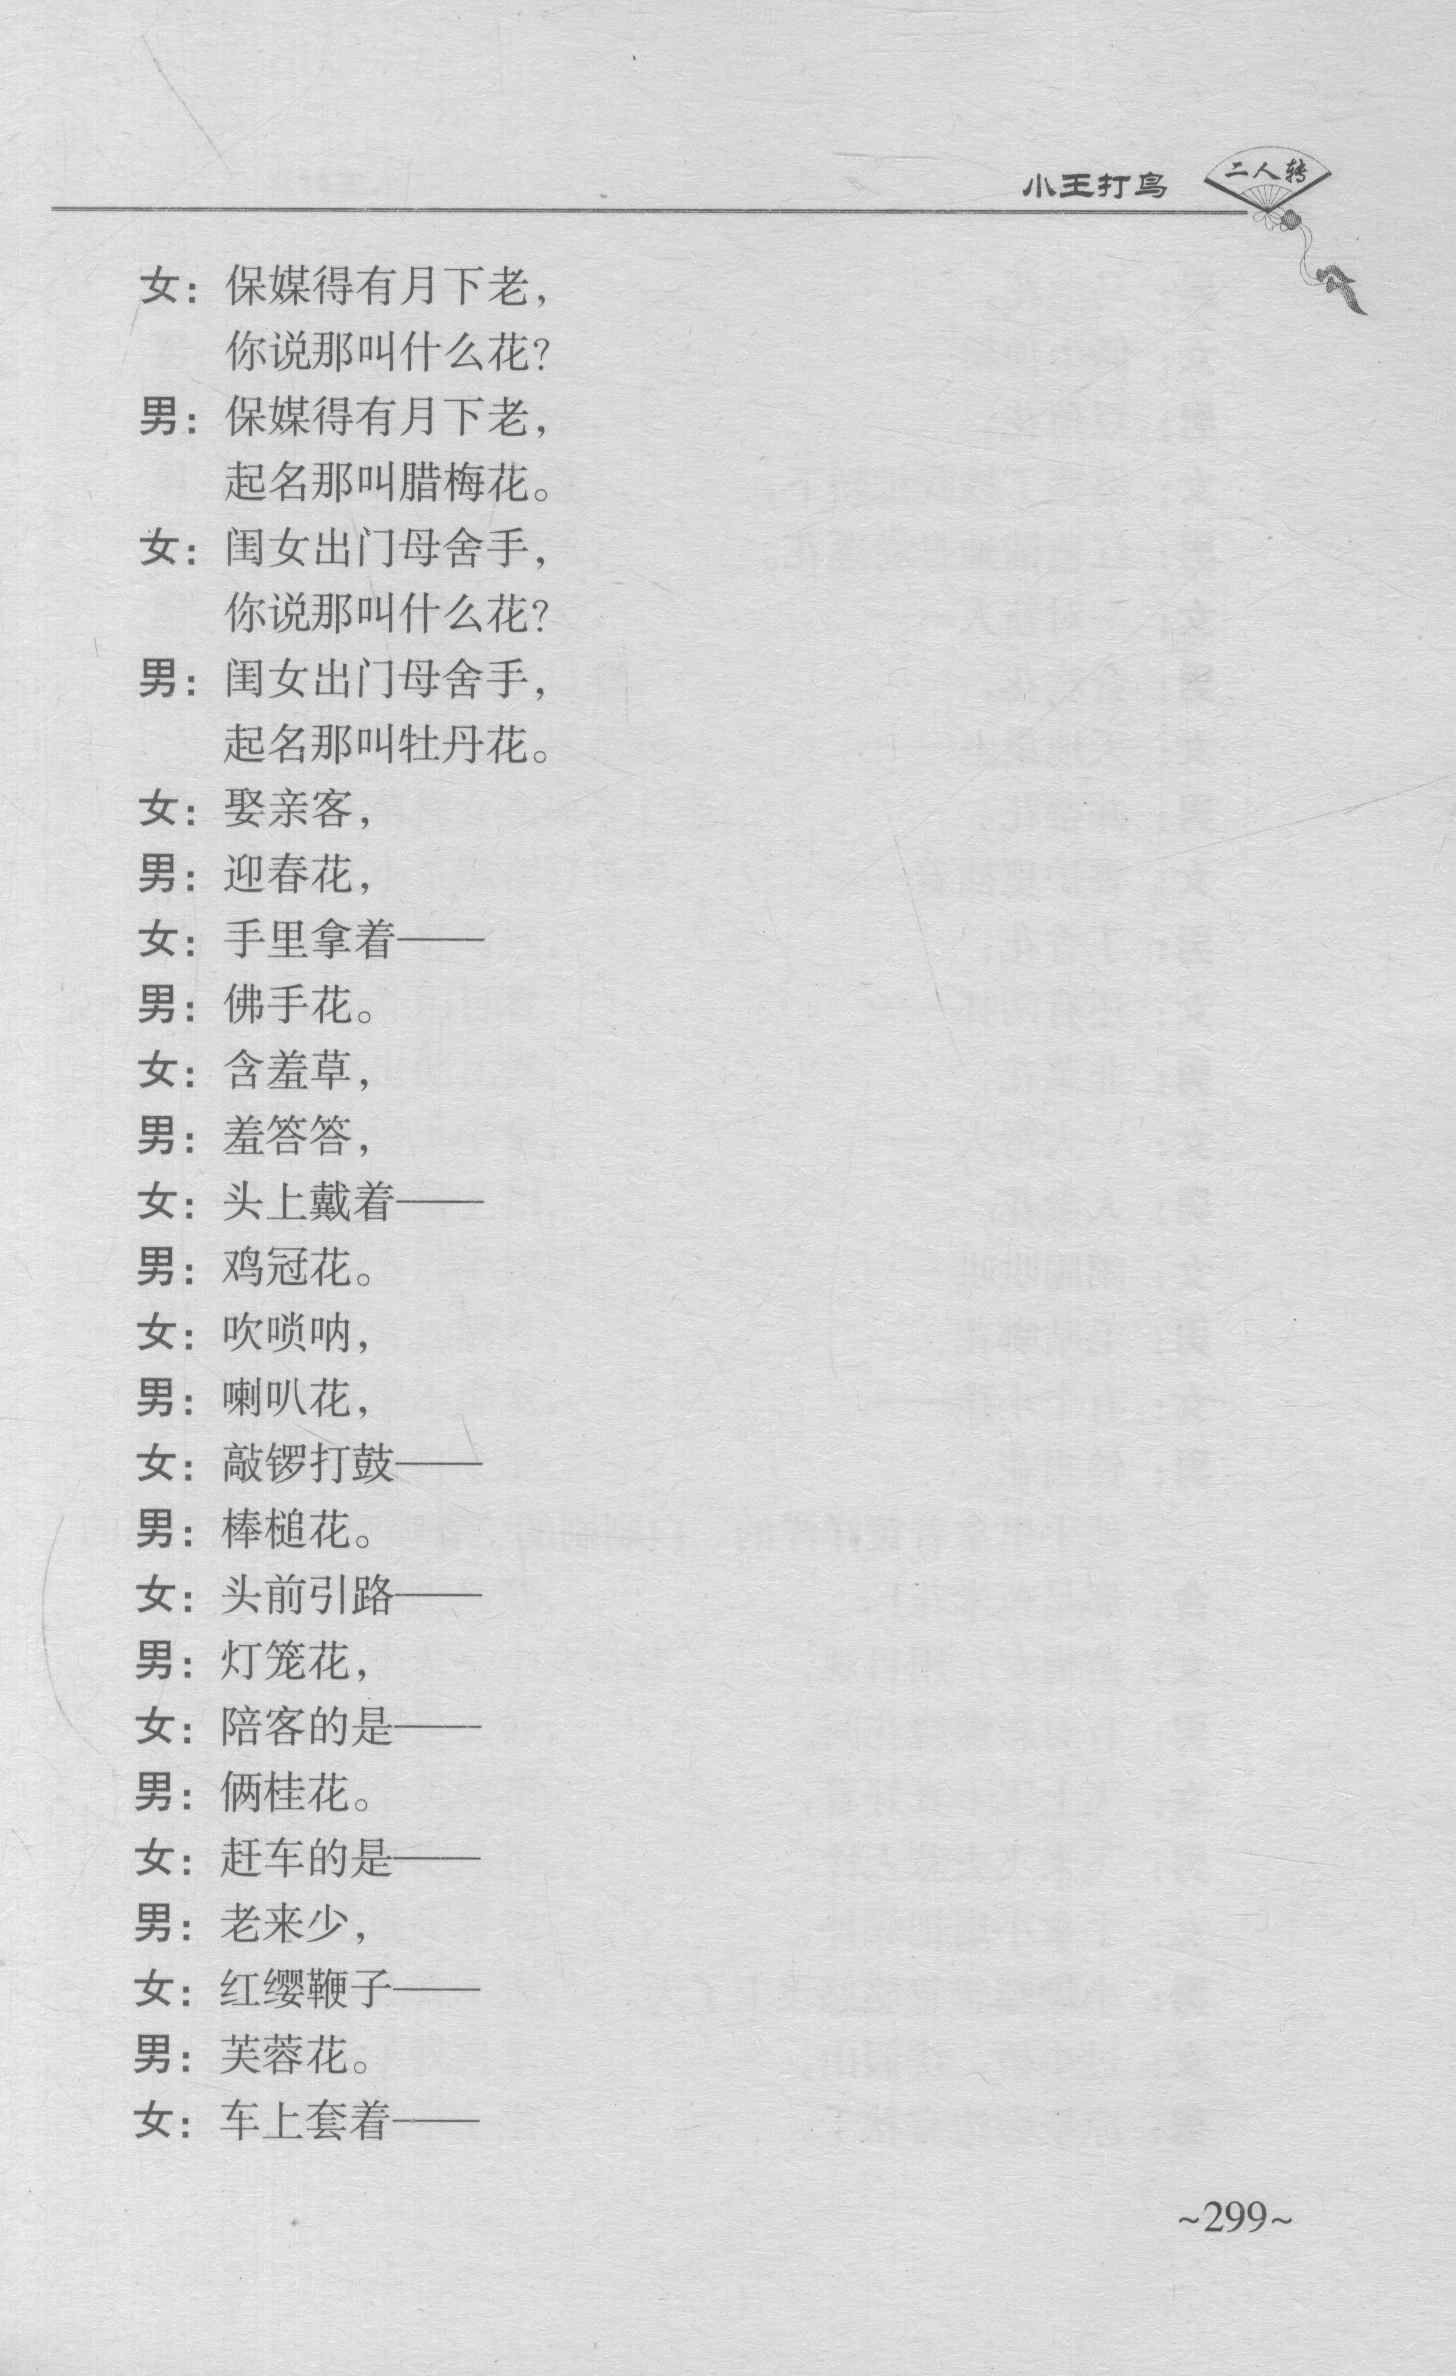 小王打鸟
二人转
女：保媒得有月下老，
你说那叫什么花？
男：保媒得有月下老，
起名那叫腊梅花。
女：闺女出门母舍手，
你说那叫什么花？
男：闺女出门母舍手，
起名那叫牡丹花。
女：娶亲客，
男：迎春花，
女：手里拿着——
男：佛手花。
女：含羞草，
男：羞答答，
女：头上戴着——
男：鸡冠花。
女：吹唢呐，
男：喇叭花，
女：敲锣打鼓——
男：棒槌花。
女：头前引路——
男：灯笼花，
女：陪客的是——
男：俩桂花。
女：赶车的是——
男：老来少，
女：红缨鞭子——
男：芙蓉花。
女：车上套着——
~299~